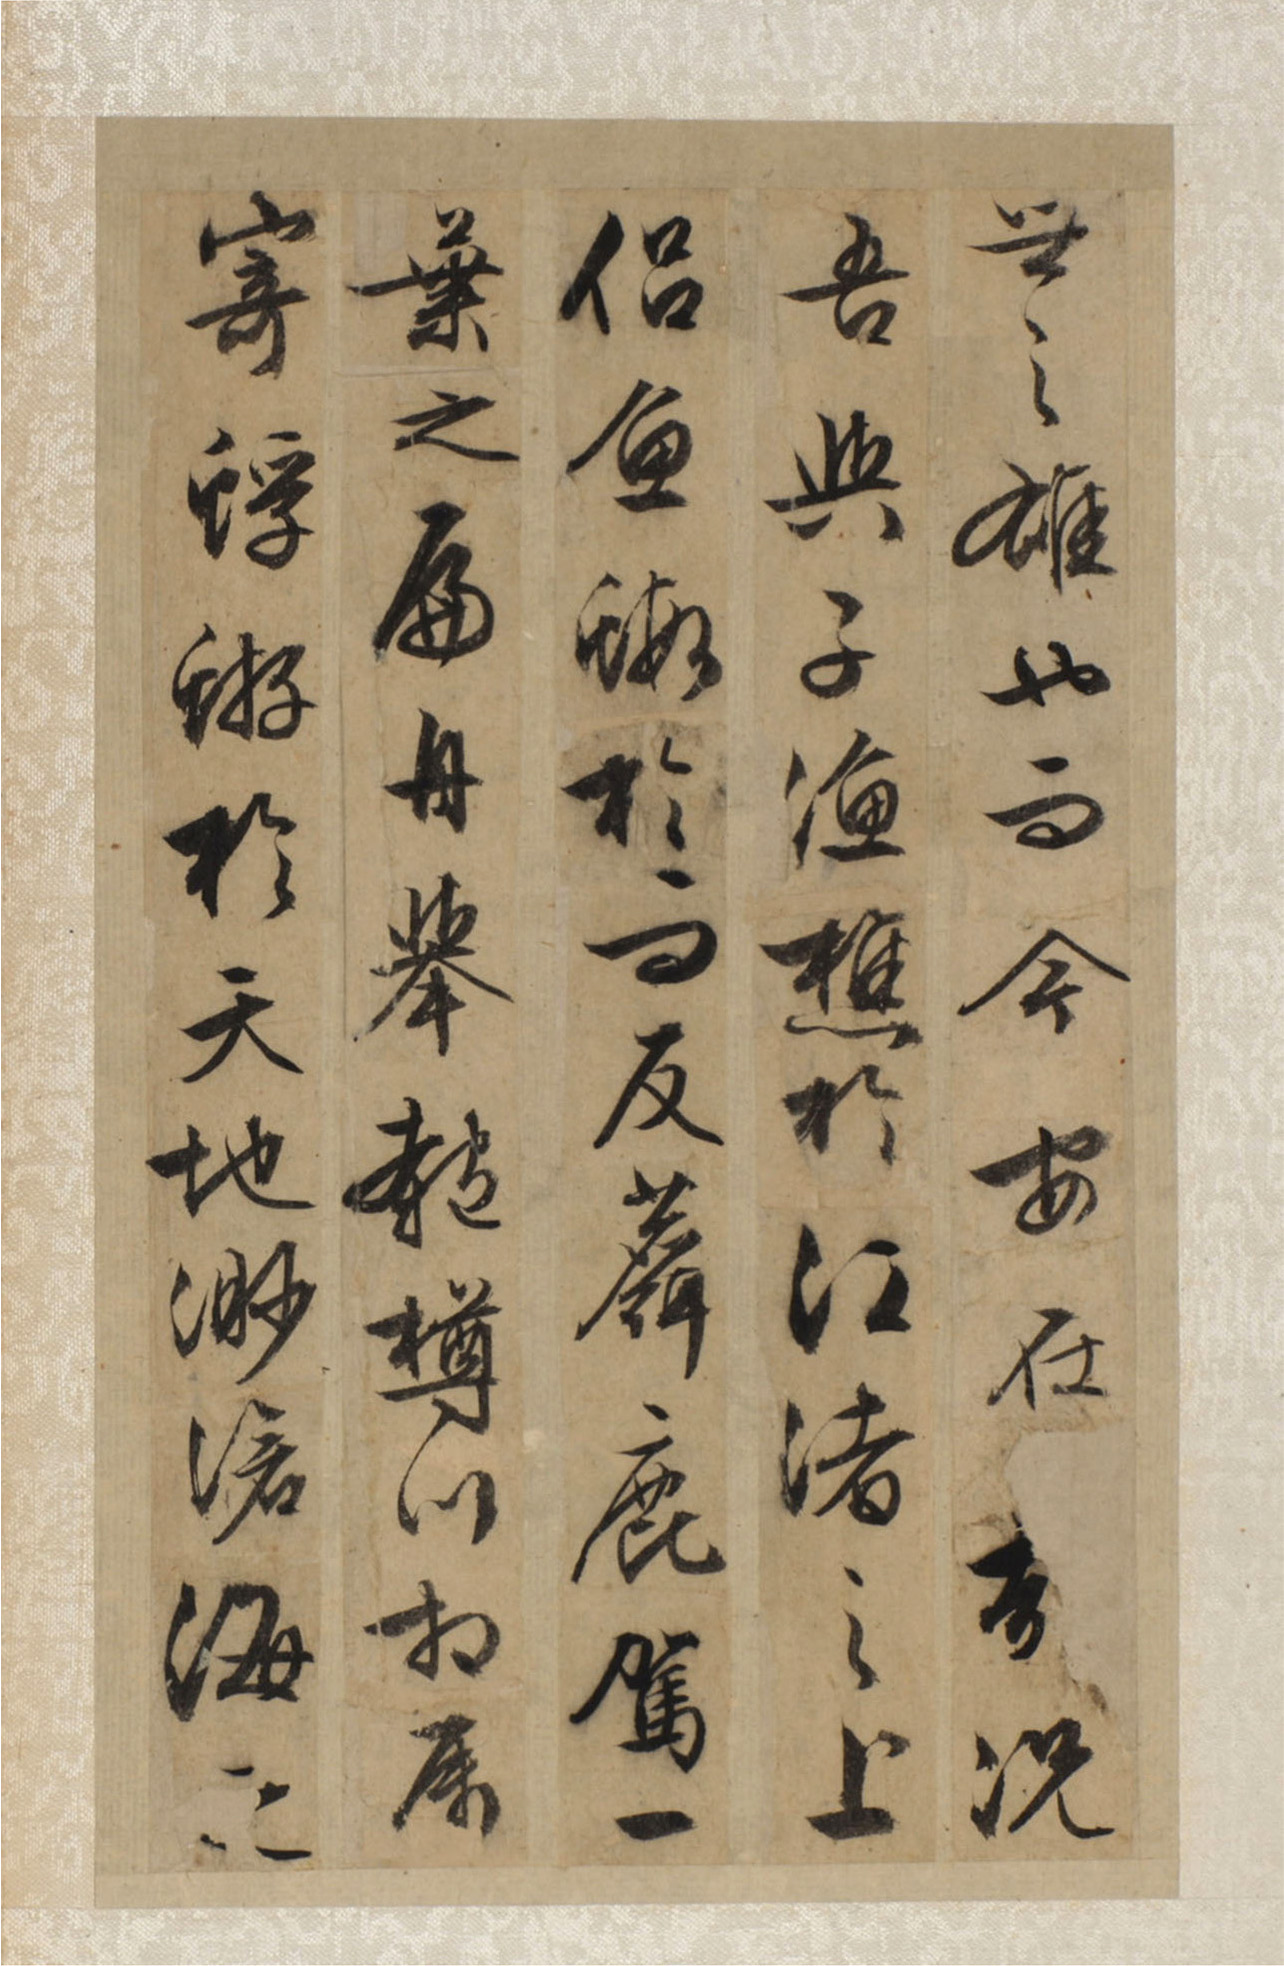 世之雄也而今安在哉況
吾與子漁樵於江渚之上
侶魚蝦於而友麋鹿駕一
葉之扁舟舉匏樽以相属
寄蜉蝣於天地渺滄海之